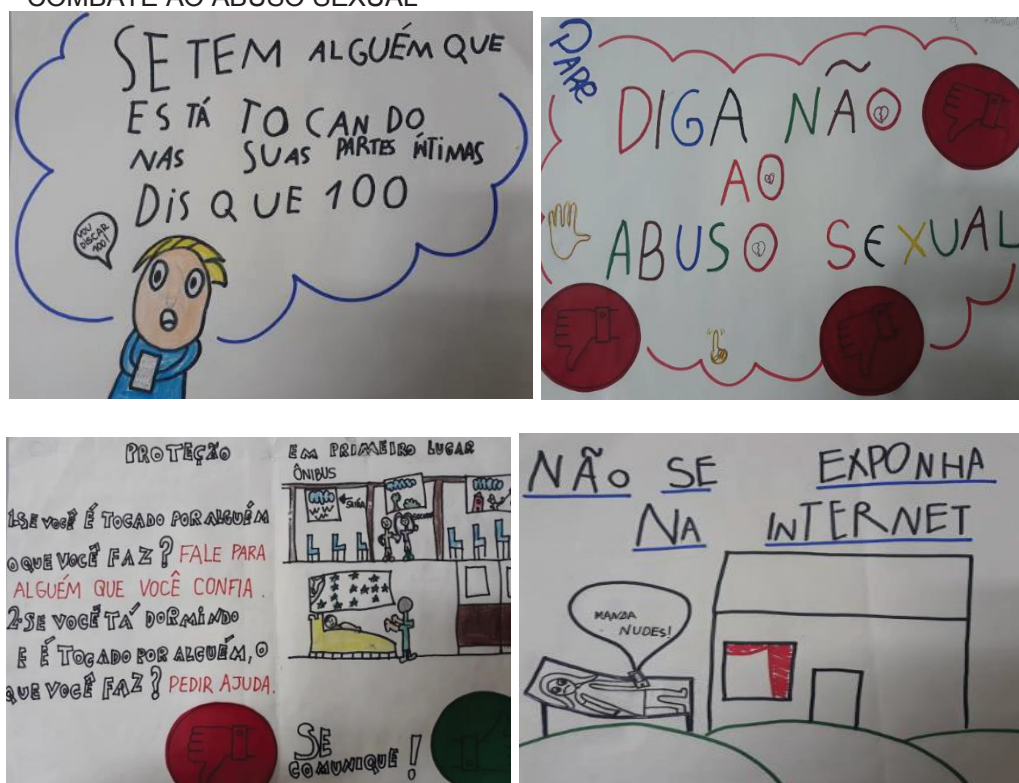 COMBATE AO ABUSO SEXUAL
SE TEM ALGUÉM QUE
ESTÁ TOCANDO
NAS SUAS PARTES ÍNTIMAS
DISQUE 100
VOU
DISCAR
100!
PARE
DIGA NÃO
AO
ABUSO SEXUAL
PROTEÇÃO
1-SE VOCÊ É TOCADO POR ALGUÉM
O QUE VOCÊ FAZ? FALE PARA
ALGUÉM QUE VOCÊ CONFIA.
2-SE VOCÊ TÁ DORMINDO
E É TOCADO POR ALGUÉM, O
QUE VOCÊ FAZ? PEDIR AJUDA.
EM PRIMEIRO LUGAR
ÔNIBUS
SE
COMUNIQUE!
NÃO SE EXPONHA
NA INTERNET
MANDA
NUDES!